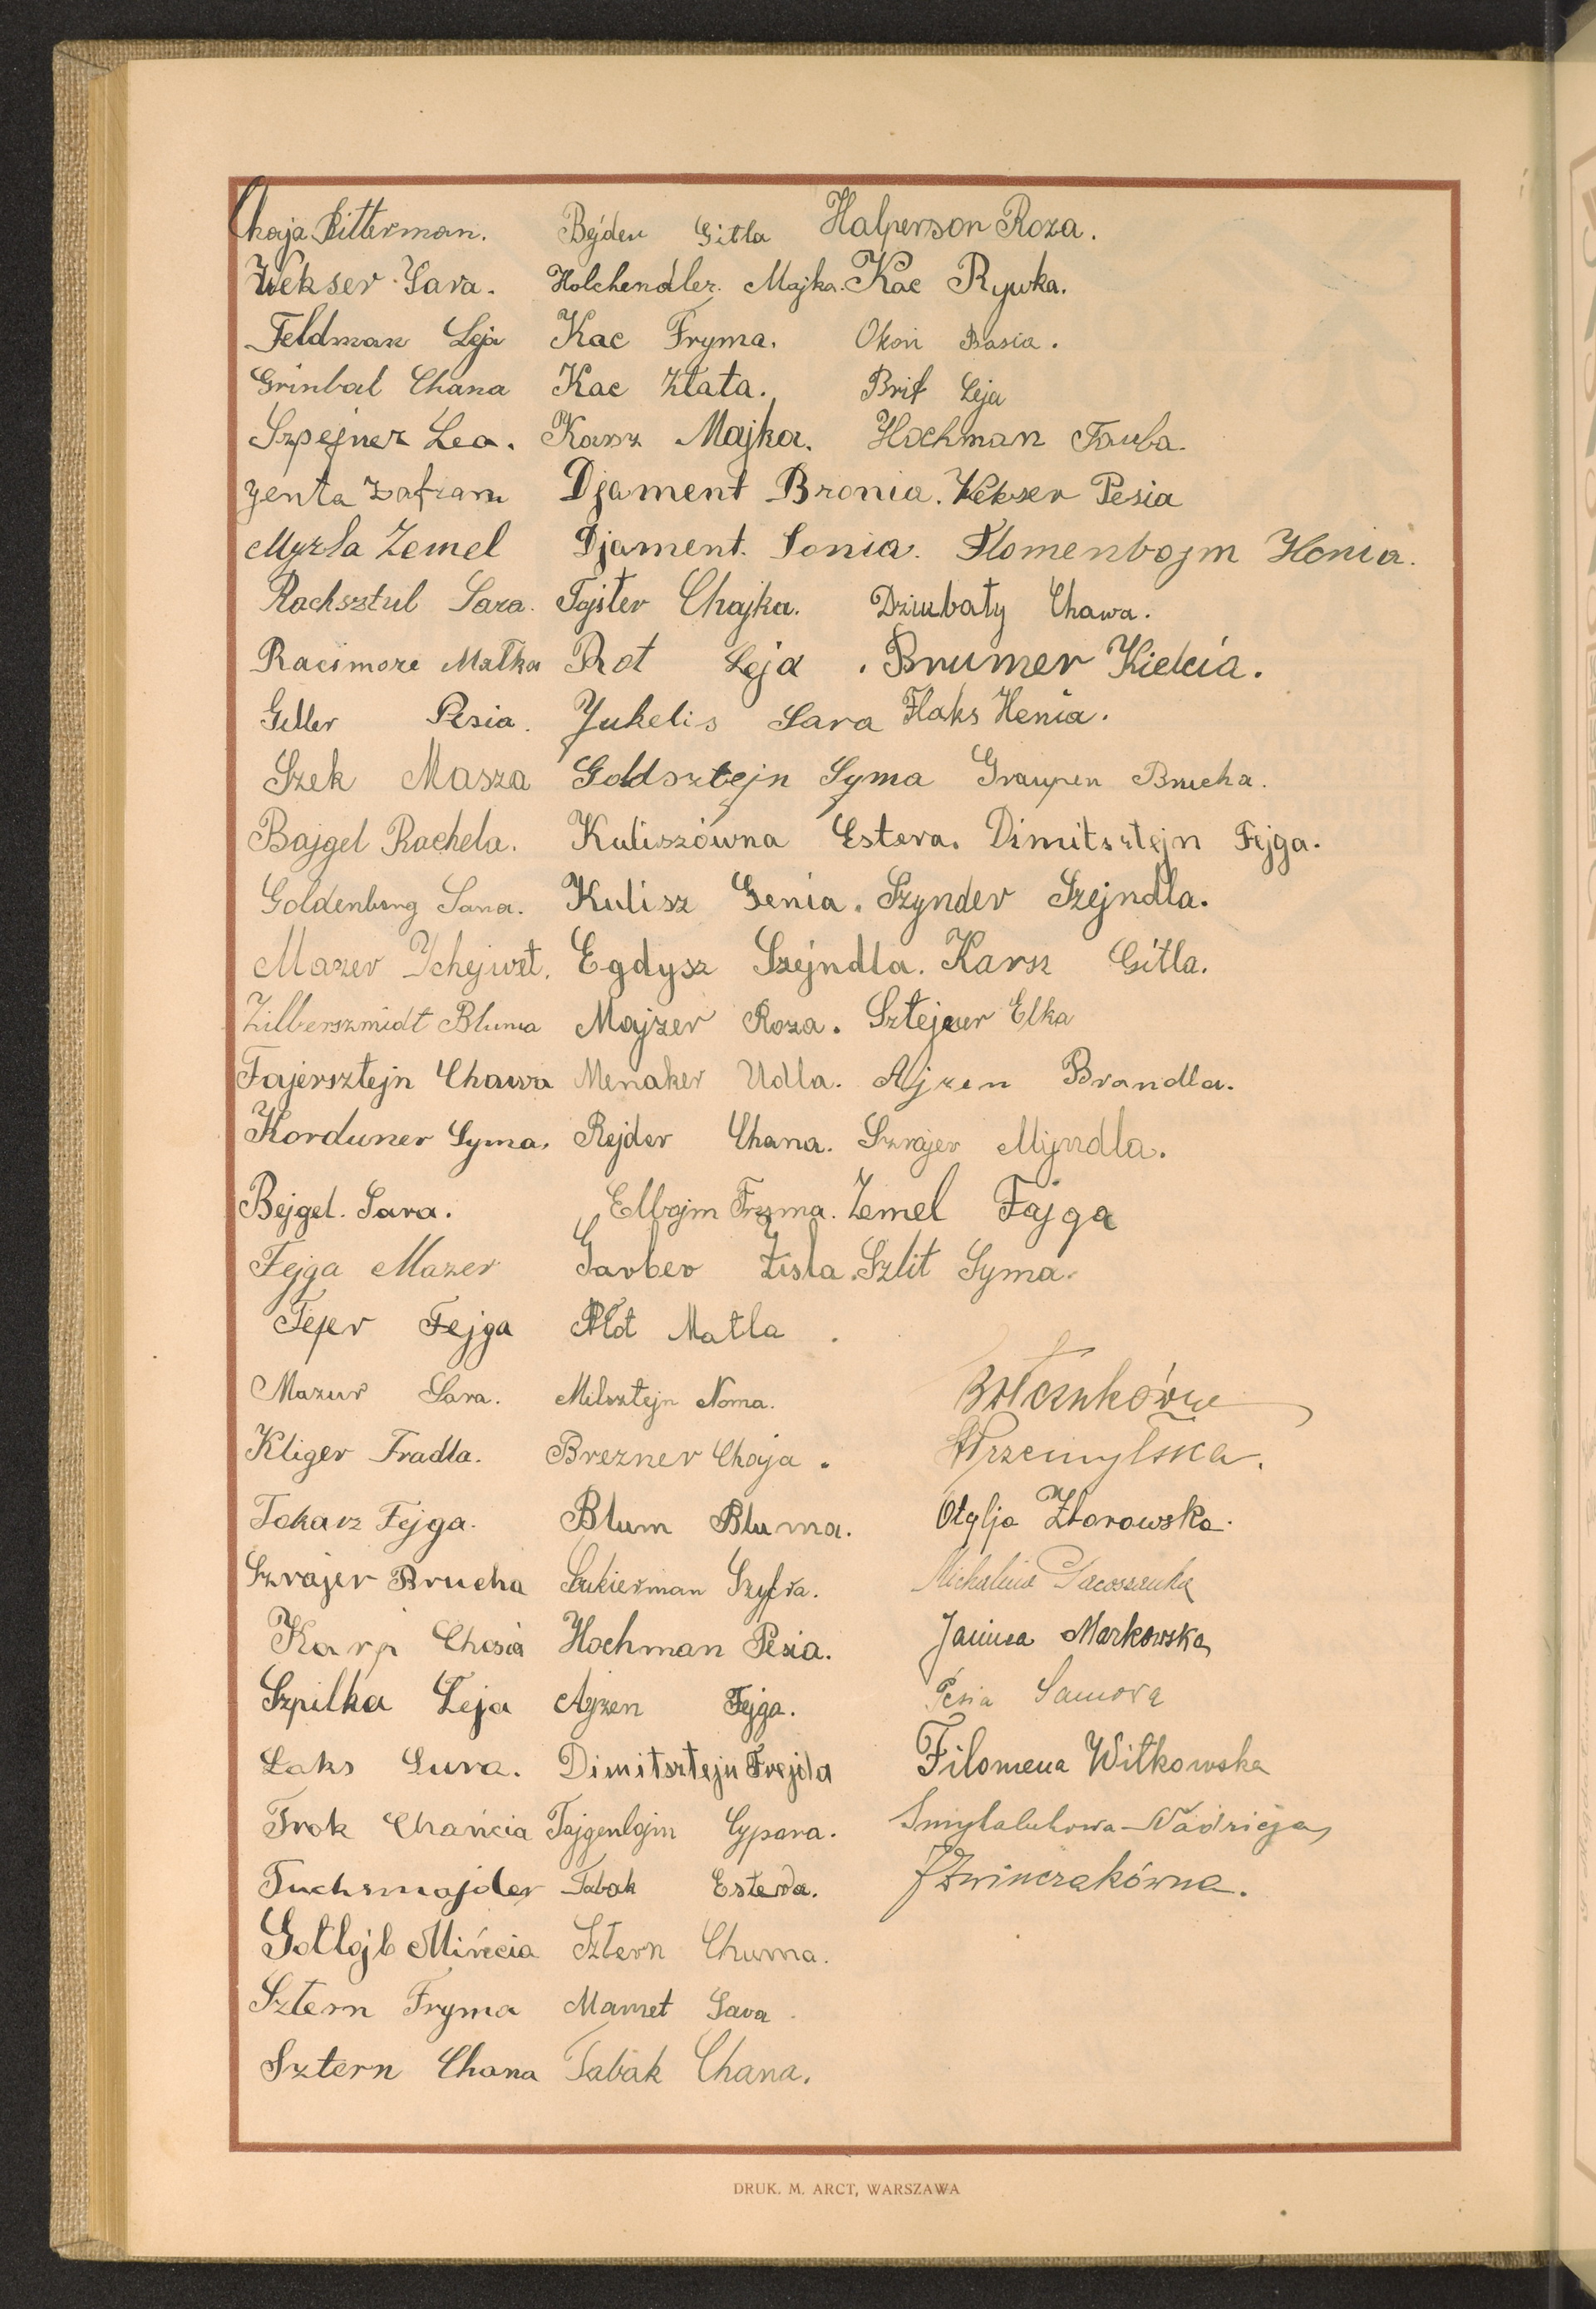 Chaja Bitterman. Bejder Gitla Halperson Roza.
Wekser Sara. Holchendler Majka. Kac Rywka.
Feldman Leja Kac Fryma. Okoń Basia.
Grinbal Chana Kac Złata. Brif Leja
Szpejner Lea. Karsz Majka. Hochman Tauba.
Jenta Szafran Djament Bronia. Wekser Pesia
Myrla Zemel Djament. Sonia. Flomenbojm Henia.
Rachsztul Sara. Fajfer Chajka. Dziubaty Chawa.
Racimore Małka Rot Leja. Brumer Kielcia.
Geller Pesia. Jukelis Sara Flaks Henia.
Szek Masza Goldsztejn Syma Graupen Brucha.
Bajgel Rachela. Kuliszówna Estera. Dimitsztejn Fejga.
Goldenberg Sara. Kulisz Genia. Sznyder Szejndla.
Mazer Egdysz Szejndla. Karsz Gitla.
Zilberszmidt Bluma Majzer Roza. Sztejner Elka
Fajersztejn Chawa Menaker Udla. Ajzen Brandla.
Korduner Syma. Rejder Chana. Szrajer Myndla.
Bejgel. Sara. Elbojm Fryma. Zemel Fajga
Fejga Mazer Garber Zisla. Szlit Syma.
Fefer Fejga Płot Matla.
Mazur Sara. Milsztejn Noma.
Kliger Fradla. Brezner Chaja.
Tokarz Fejga. Blum Bluma. Otylja Zborowska.
Szrajer Brucha Cukierman Szyfra. Michalina
Karp Chasia Hochman Pesia. Janina Markowska
Szpilka Leja Ajzen Fejga. Pesia Samora
Laks Sura. Dimitsztejn Frejda Filomena Witkowska
Frok Chańcia Fajgenbojm Cypora.
Fuchsmajder Tabak Estera. J Zwinczakówna.
Gotlojb Mińcia Sztern Chuma.
Sztern Fryma Mamet Sara.
Sztern Chana Tabak Chana.
DRUK. M. ARCT, WARSZAWA